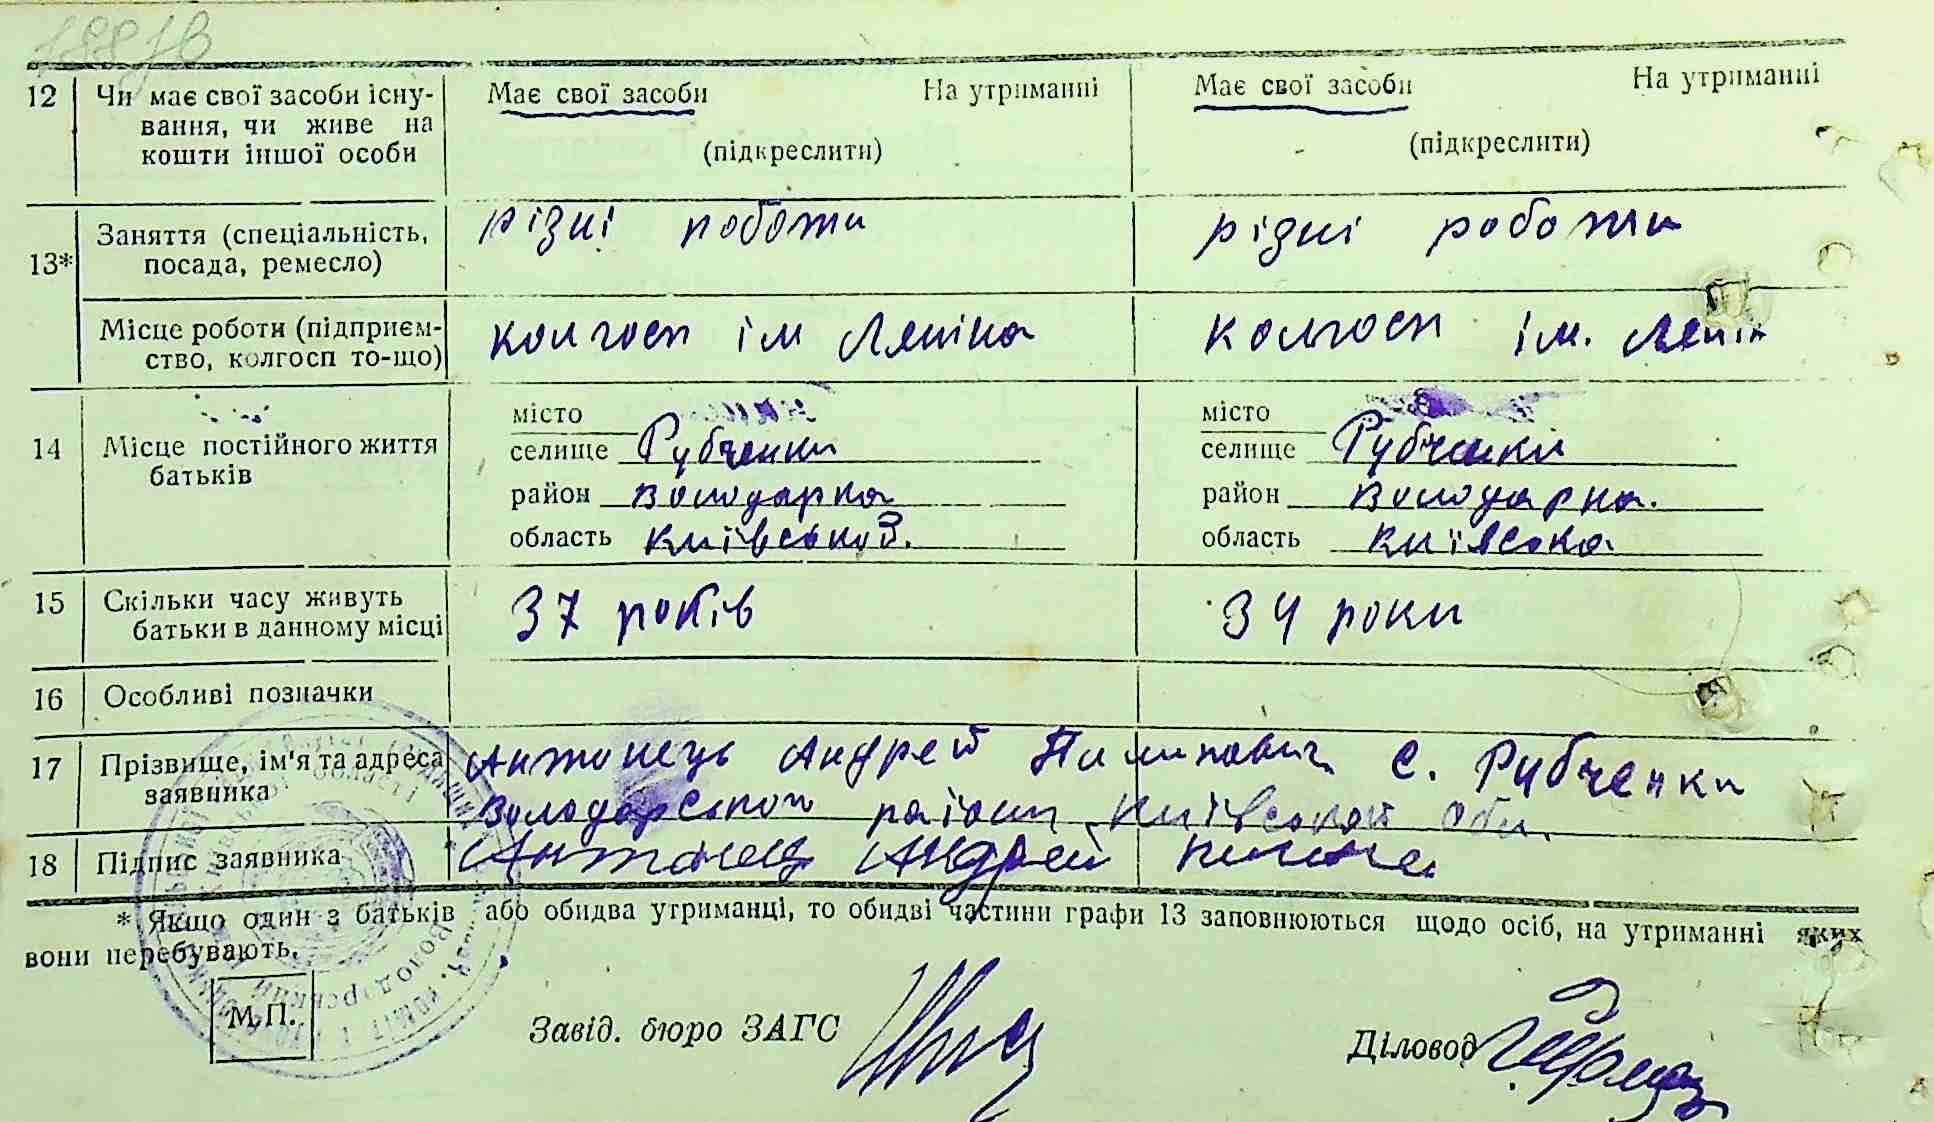 12 Чи має свої засоби існу- Має свої засоби На утриманні Має свої засоби На утриманні
вання, чи живе на
кошти іншої особи (підкреслити) (підкреслити)
13* Заняття (спеціальність, різні роботи різні роботи
посада, ремесло)
Місце роботи (підприєм- колгосп ім Леніна колгосп ім. Ленін
ство, колгосп то-що)
14 Місце постійного життя
батьків
місто місто
селище Рубченки селище Рубченки
район Володарка район Володарка.
область Київської. область Київська
15 Скільки часу живуть 37 років 34 роки
батьки в данному місці
16 Особливі позначки
17 Прізвище, ім'я та адреса Антонець Андрей Пилипович с. Рубченки
заявника Володарського району Київської обл.
18 Підпис заявника Антонец Андрей
* Якщо один з батьків або обидва утриманці, то обидві частини графи 13 заповнюються щодо осіб, на утриманні яких
вони перебувають.
М.П. Завід. бюро ЗАГС Діловод